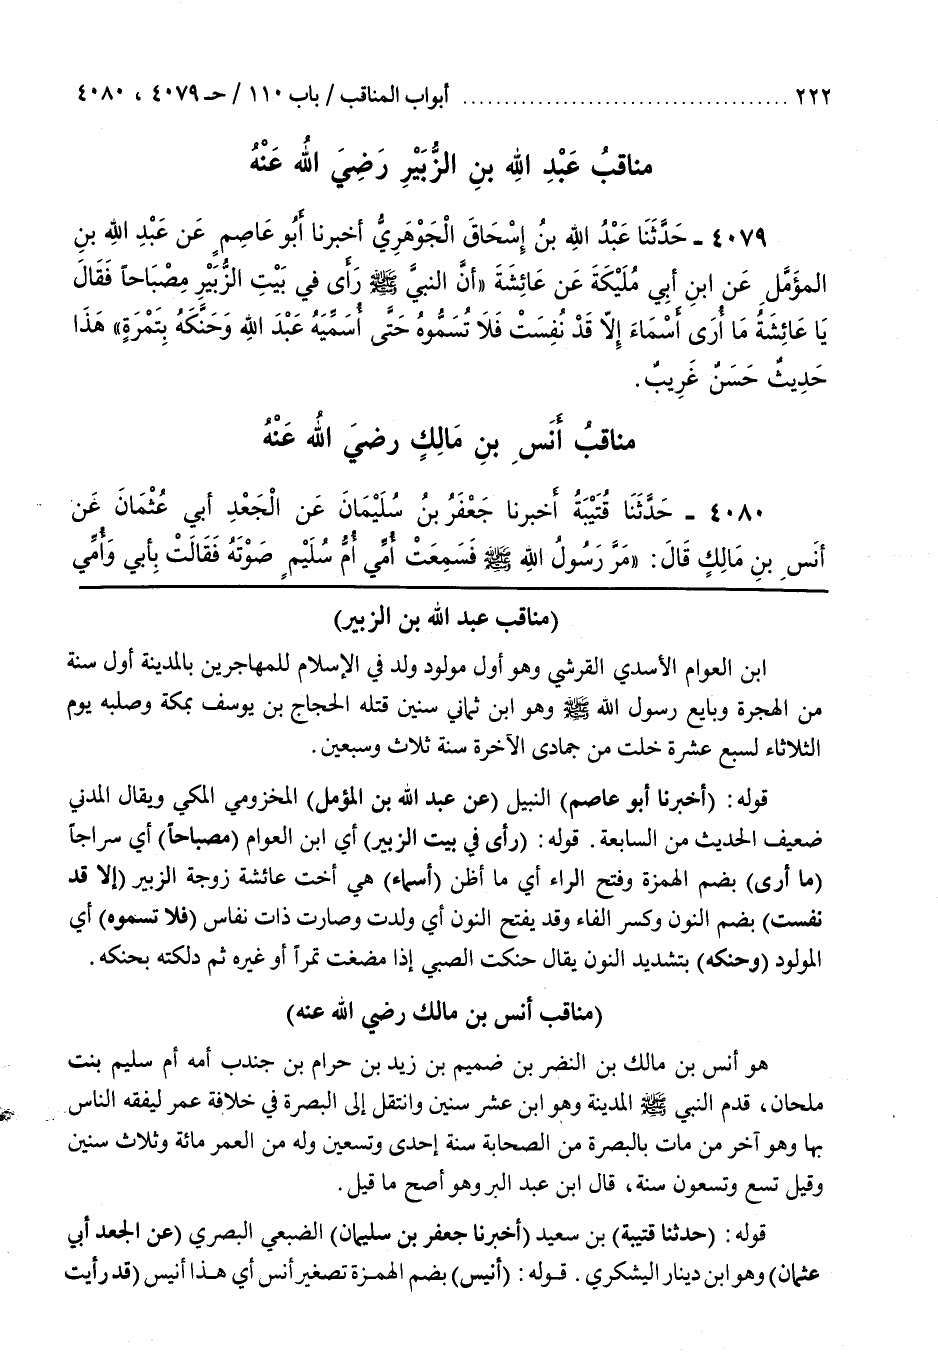 ٢٢٢ ..................................... أبواب المناقب / باب ١١٠ / حـ ٤٠٧٩ ، ٤٠٨٠
مناقبُ عَبْدِ اللهِ بنِ الزُّبَيْرِ رَضِيَ اللهُ عَنْهُ
٤٠٧٩ ـ حَدَّثَنَا عَبْدُ اللهِ بنُ إِسْحَاقَ الْجَوْهَرِيُّ أخبرنا أَبُو عَاصِمٍ عَن عَبْدِ اللهِ بنِ
المؤَمَّلِ عَن ابنِ أبي مُلَيْكَةَ عَن عَائِشَةَ «أنَّ النبيَّ ﷺ رَأَى في بَيْتِ الزُّبَيْرِ مِصْبَاحاً فَقَالَ
يَا عَائِشَةُ مَا أُرَى أَسْمَاءَ إِلاّ قَدْ نُفِسَتْ فَلَا تُسَمُّوهُ حَتَّى أُسَمِّيَهُ عَبْدَ الله وَحَنَّكَهُ بِتَمْرَةٍ» هَذَا
حَدِيثٌ حَسَنٌ غَرِيبٌ.
مناقبُ أَنَسِ بنِ مَالِكٍ رضيَ اللهُ عَنْهُ
٤٠٨٠ ـ حَدَّثَنَا قُتَيْبَةُ أَخبرنا جَعْفَرُ بنُ سُلَيْمَانَ عَن الْجَعْدِ أبي عُثْمَانَ عَن
أنَسِ بنِ مَالِكٍ قَالَ: «مَرَّ رَسُولُ اللهِ ﷺ فَسَمِعَتْ أُمِّي أُمُّ سُلَيْمٍ صَوْتَهُ فَقَالَتْ بِأَبي وَأُمِّي
(مناقب عبد الله بن الزبير)
ابن العوام الأسدي القرشي وهو أول مولود ولد في الإسلام للمهاجرين بالمدينة أول سنة
من الهجرة وبايع رسول الله ﷺ وهو ابن ثماني سنين قتله الحجاج بن يوسف بمكة وصلبه يوم
الثلاثاء لسبع عشرة خلت من جمادى الآخرة سنة ثلاث وسبعين.
قوله: (أخبرنا أبو عاصم) النبيل (عن عبد الله بن المؤمل) المخزومي المكي ويقال المدني
ضعيف الحديث من السابعة. قوله: (رأى في بيت الزبير) أي ابن العوام (مصباحاً) أي سراجاً
(ما أرى) بضم الهمزة وفتح الراء أي ما أظن (أسماء) هي أخت عائشة زوجة الزبير (إلا قد
نفست) بضم النون وكسر الفاء وقد يفتح النون أي ولدت وصارت ذات نفاس (فلا تسموه) أي
المولود (وحنكه) بتشديد النون يقال حنكت الصبي إذا مضغت تمراً أو غيره ثم دلكته بحنكه.
(مناقب أنس بن مالك رضي الله عنه)
هو أنس بن مالك بن النضر بن ضميم بن زيد بن حرام بن جندب أمه أم سليم بنت
ملحان، قدم النبي ﷺ المدينة وهو ابن عشر سنين وانتقل إلى البصرة في خلافة عمر ليفقه الناس
بها وهو آخر من مات بالبصرة من الصحابة سنة إحدى وتسعين وله من العمر مائة وثلاث سنين
وقيل تسع وتسعون سنة، قال ابن عبد البر وهو أصح ما قيل.
قوله: (حدثنا قتيبة) بن سعيد (أخبرنا جعفر بن سليمان) الضبعي البصري (عن الجعد أبي
عثمان) وهو ابن دينار اليشكري. قـولـه: (أنيس) بضم الهمـزة تصغير أنس أي هـذا أنيس (قد رأيت